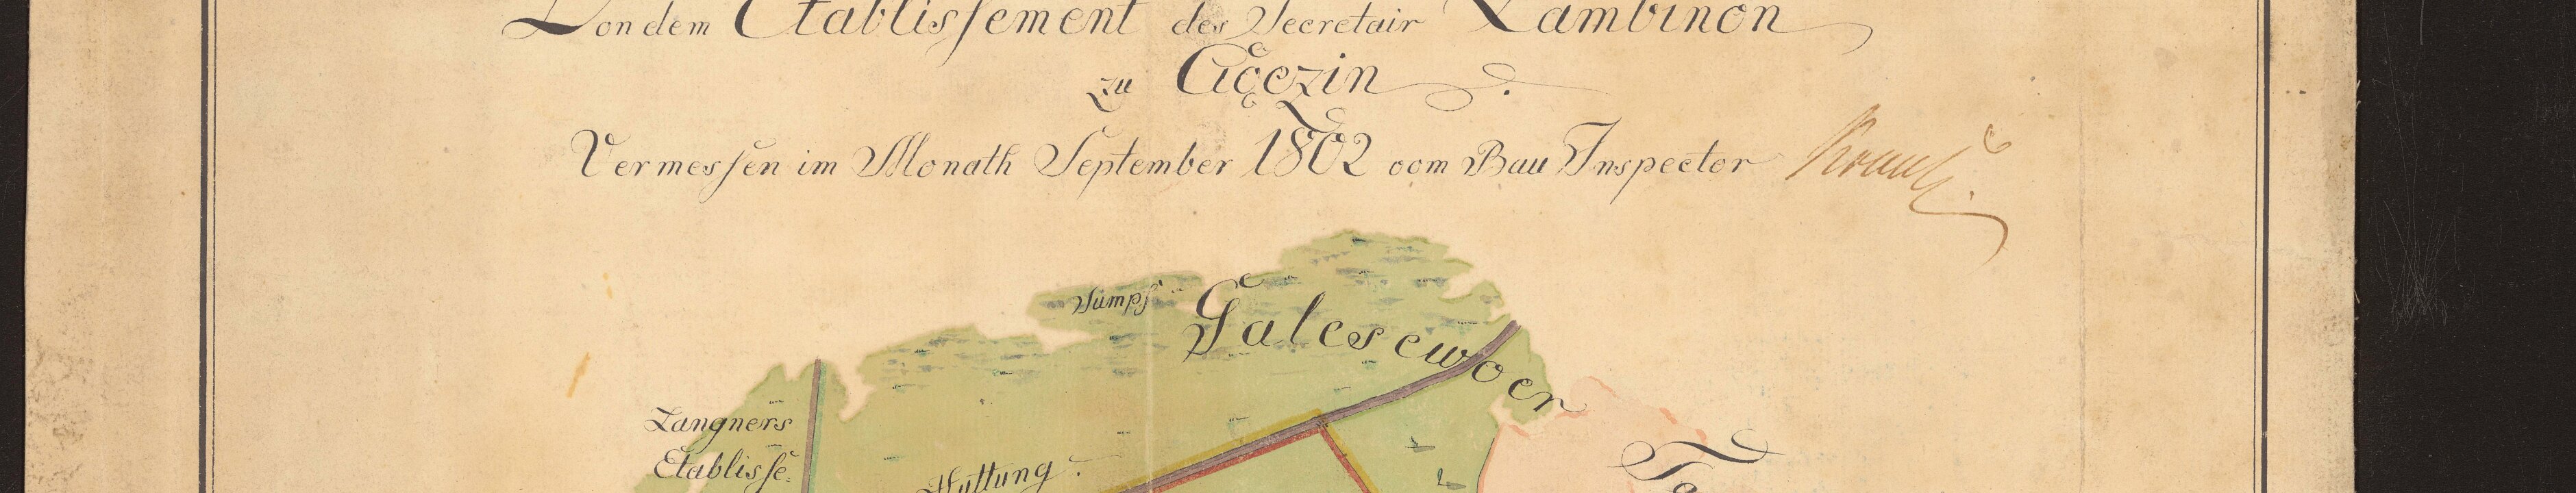 Von dem Etablissement des Secretair Lambinon
zu
Vermessen im Monath September 1802 vom Bau Inspector
Sumpf
Galesewoer
Langners
Etablisse=
Huttung